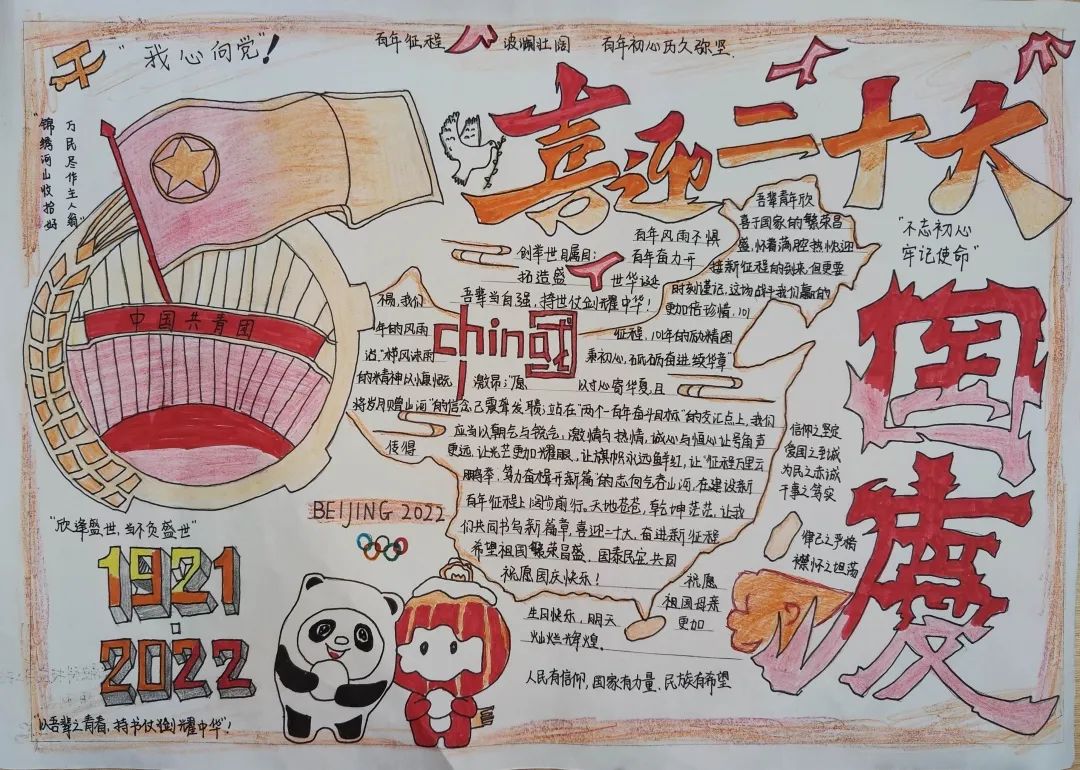 "我心向党"!
百年征程 波澜壮阔 百年初心历久弥坚.
喜迎二十大
"锦绣河山收拾好
万民尽作主人翁"
中国共青团
"不忘初心
牢记使命"
国庆
吾辈青年欣
喜于国家的繁荣昌
盛,怀着满腔热忱迎
接新征程的到来,但更要
时刻谨记,这场战斗我们赢的
更加倍珍惜,101
百年风雨不惧
创举世瞩目;百年奋力开
拓造盛世华诞
吾辈当自强,持世仗剑耀中华!
祸,我们
年的风雨
沾"栉风沐雨
的精神以慷慨
china国
征程,101年的励精图
秉初心,砥砺奋进续华章"
激昂;"愿 以寸心寄华夏,且
将岁月赠山河"的信念,已震聋发聩;站在"两个一百年奋斗目标"的交汇点上,我们
应当以朝气与锐气,激情与热情,诚心与恒心让号角声
传得
更远,让光芒更加耀眼,让旗帜永远鲜红,让"征程万里云
鹏举,努力奋楫开新篇"的志向气吞山河,在建设新
百年征程上阔步前行。天地苍苍,乾坤茫茫,让我
们共同书写新篇章,喜迎二十大,奋进新征程
希望祖国繁荣昌盛,国泰民安,共同
祝愿国庆快乐! 祝愿
祖国母亲
生日快乐,明天 更加
灿烂辉煌.
人民有信仰,国家有力量,民族有希望
信仰之坚定
爱国之至诚
为民之赤诚
干事之笃实
律己之严格
襟怀之坦荡
BEIJING 2022
"欣逢盛世,当不负盛世"
1921
-
2022
"以吾辈之青春,持书仗剑耀中华"!